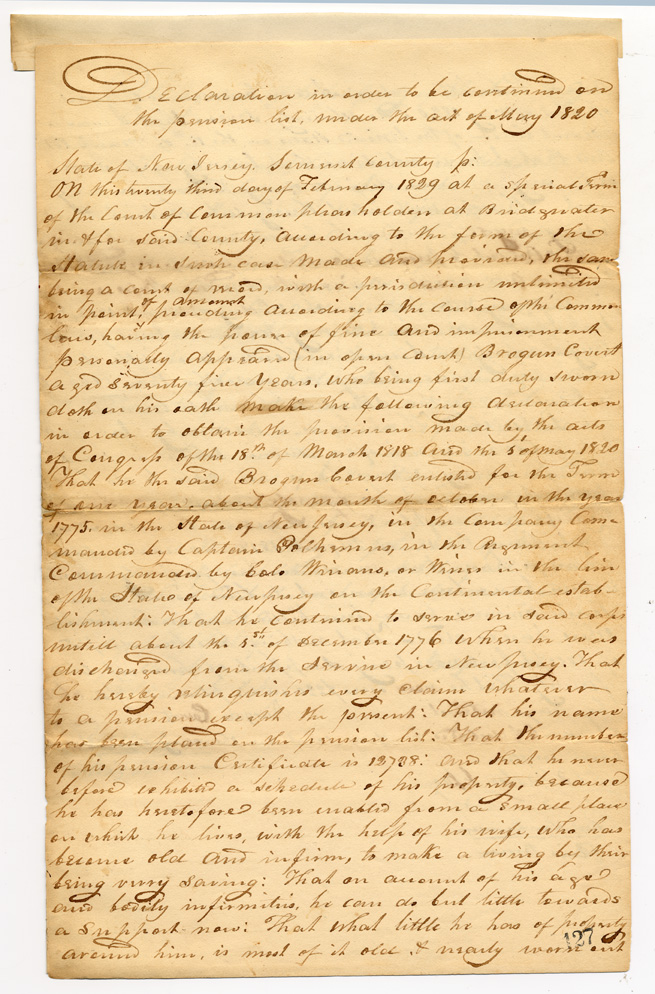 Declaration in order to be continued on
the pension list, under the act of May 1820
State of New Jersey. Somerset County
ON this twenty third day of February 1829 at a special Term
of the Court of Common pleas holden at Bridgewater
in & for said County, according to the form of the
Statute in such case made and provided, the same
being a court of record, with a jurisdiction unlimited
in point of amount, proceeding according to the course of the Common
law, having the power of fine and imprisonment
personally appeared (in open court) Brogun Covert
aged seventy five years, who being first duly sworn
doth on his oath make the following declaration
in order to obtain the provision made by the acts
of Congress of the 18th of March 1818 and the 1st of may 1820
That he the said Brogun Covert enlisted for the Term
of one year, about the month of october in the year
1775. in the State of New Jersey, in the Company Com-
manded by Captain Polhemus, in the Regiment
Commanded by Colo Winans, or Winds in the line
of the State of New jersey on the Continental estab-
lishment: That he continued to serve in said corps
untill about the 5th of december 1776 when he was
discharged from the service in New jersey. That
he hereby relinquishes every claim whatever
to a pension except the present: That his name
has been placed on the pension list: That the number
of his pension Certificate is 13728: and that he never
before exhibited a schedule of his property, because
he has heretofore been enabled from a small place
on which he lives, with the help of his wife, who has
become old and infirm, to make a living by their
being very saving: That on account of his age
and bodily infirmities, he can do but little towards
a support now: That what little he has of property
around him, is most of it old & nearly worn out
127